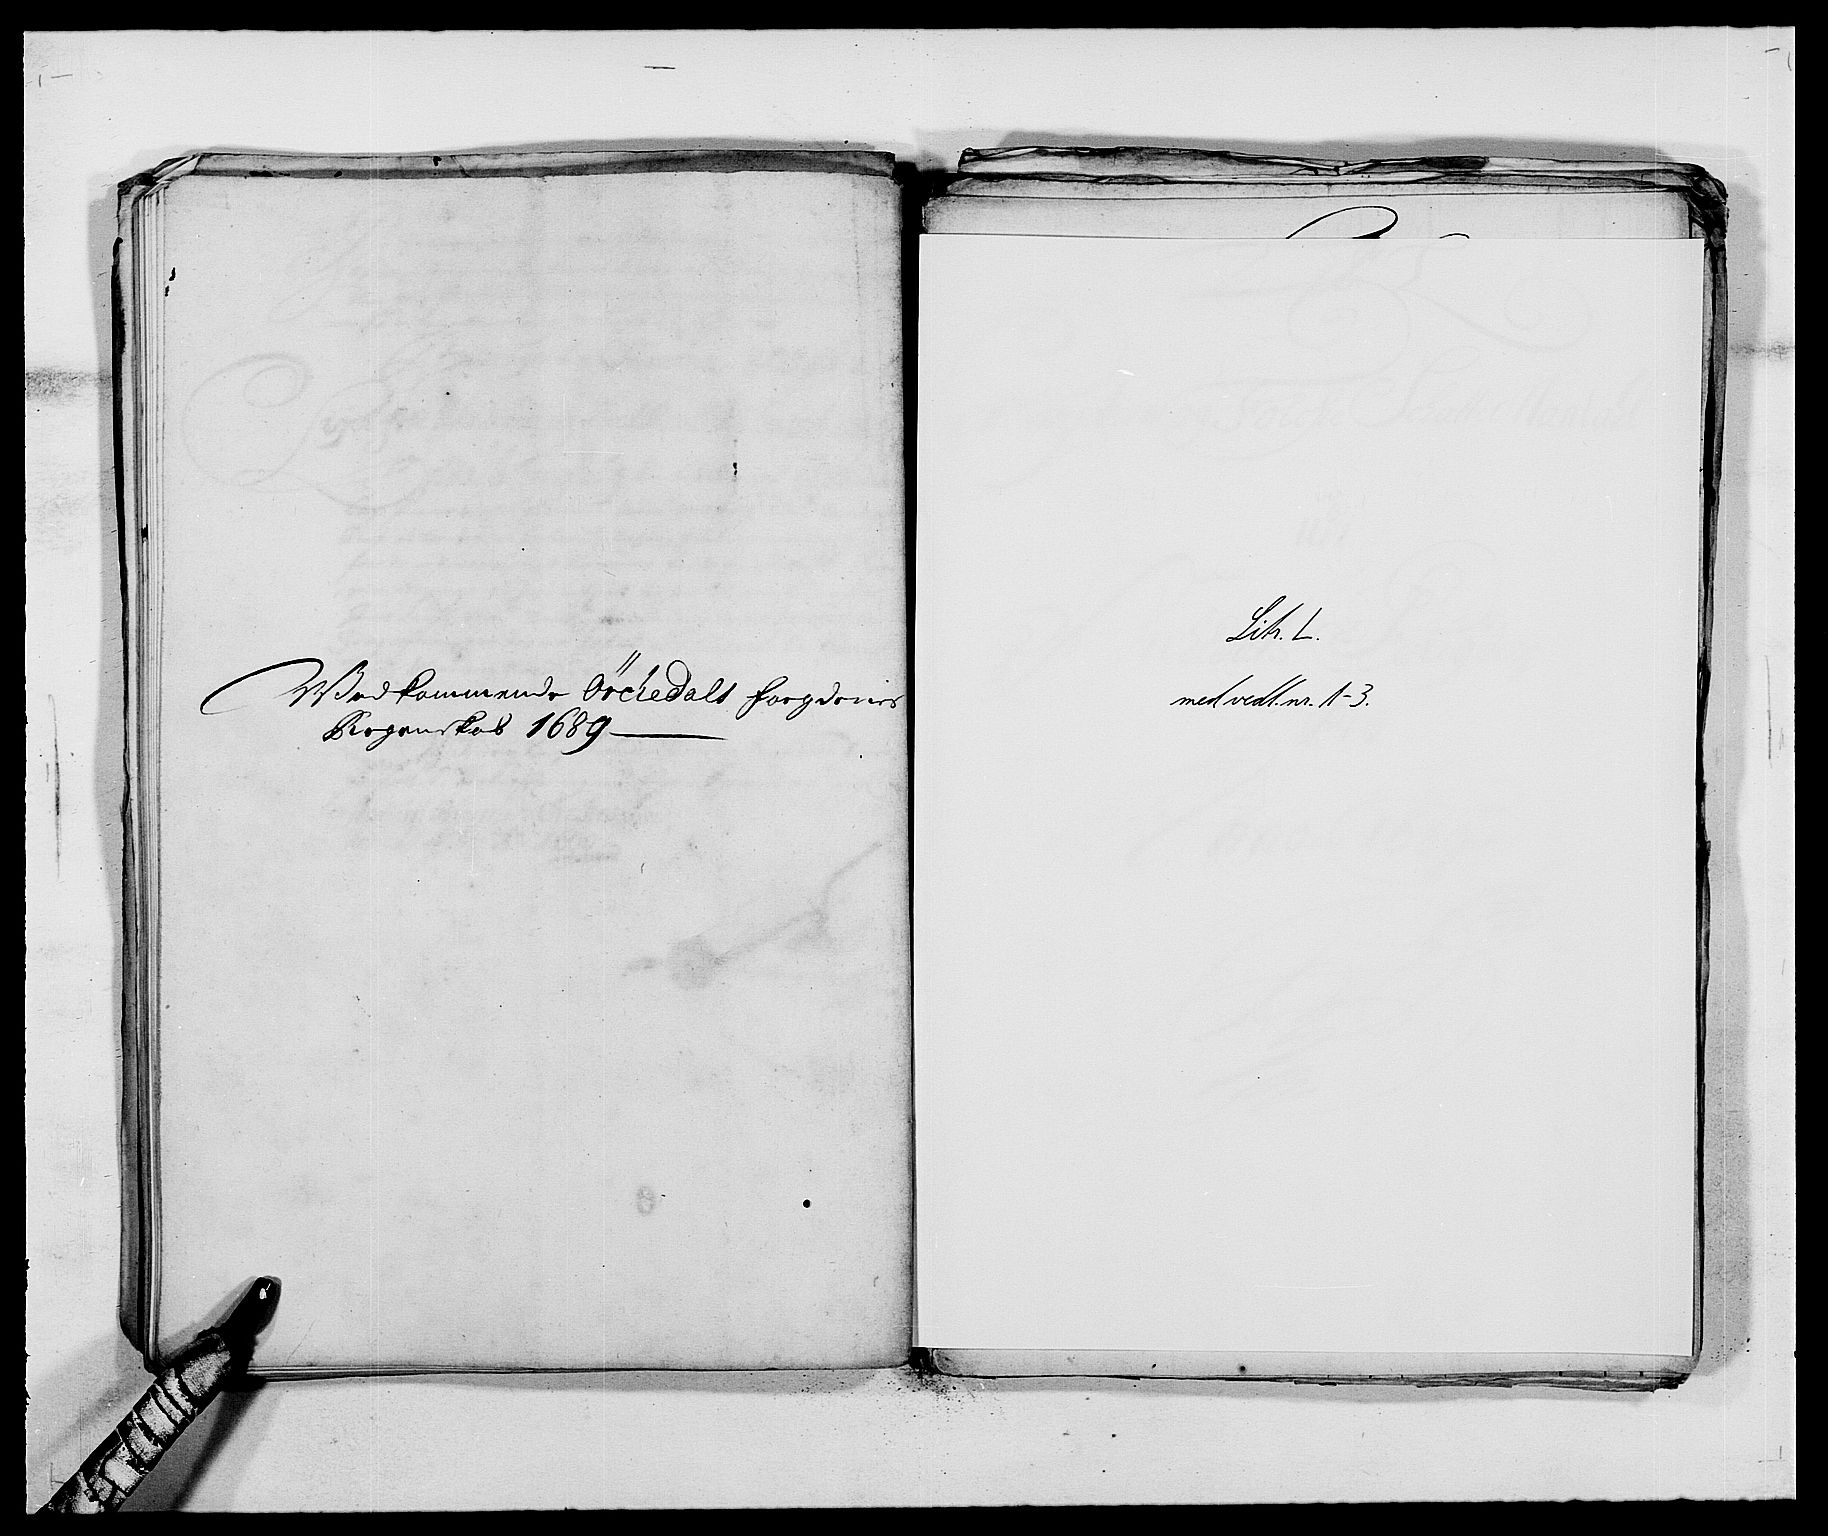 Wedkommende Örchedals foegderies
Regenskab 1689
Litr. L.
med vedl. nr. 1-3.